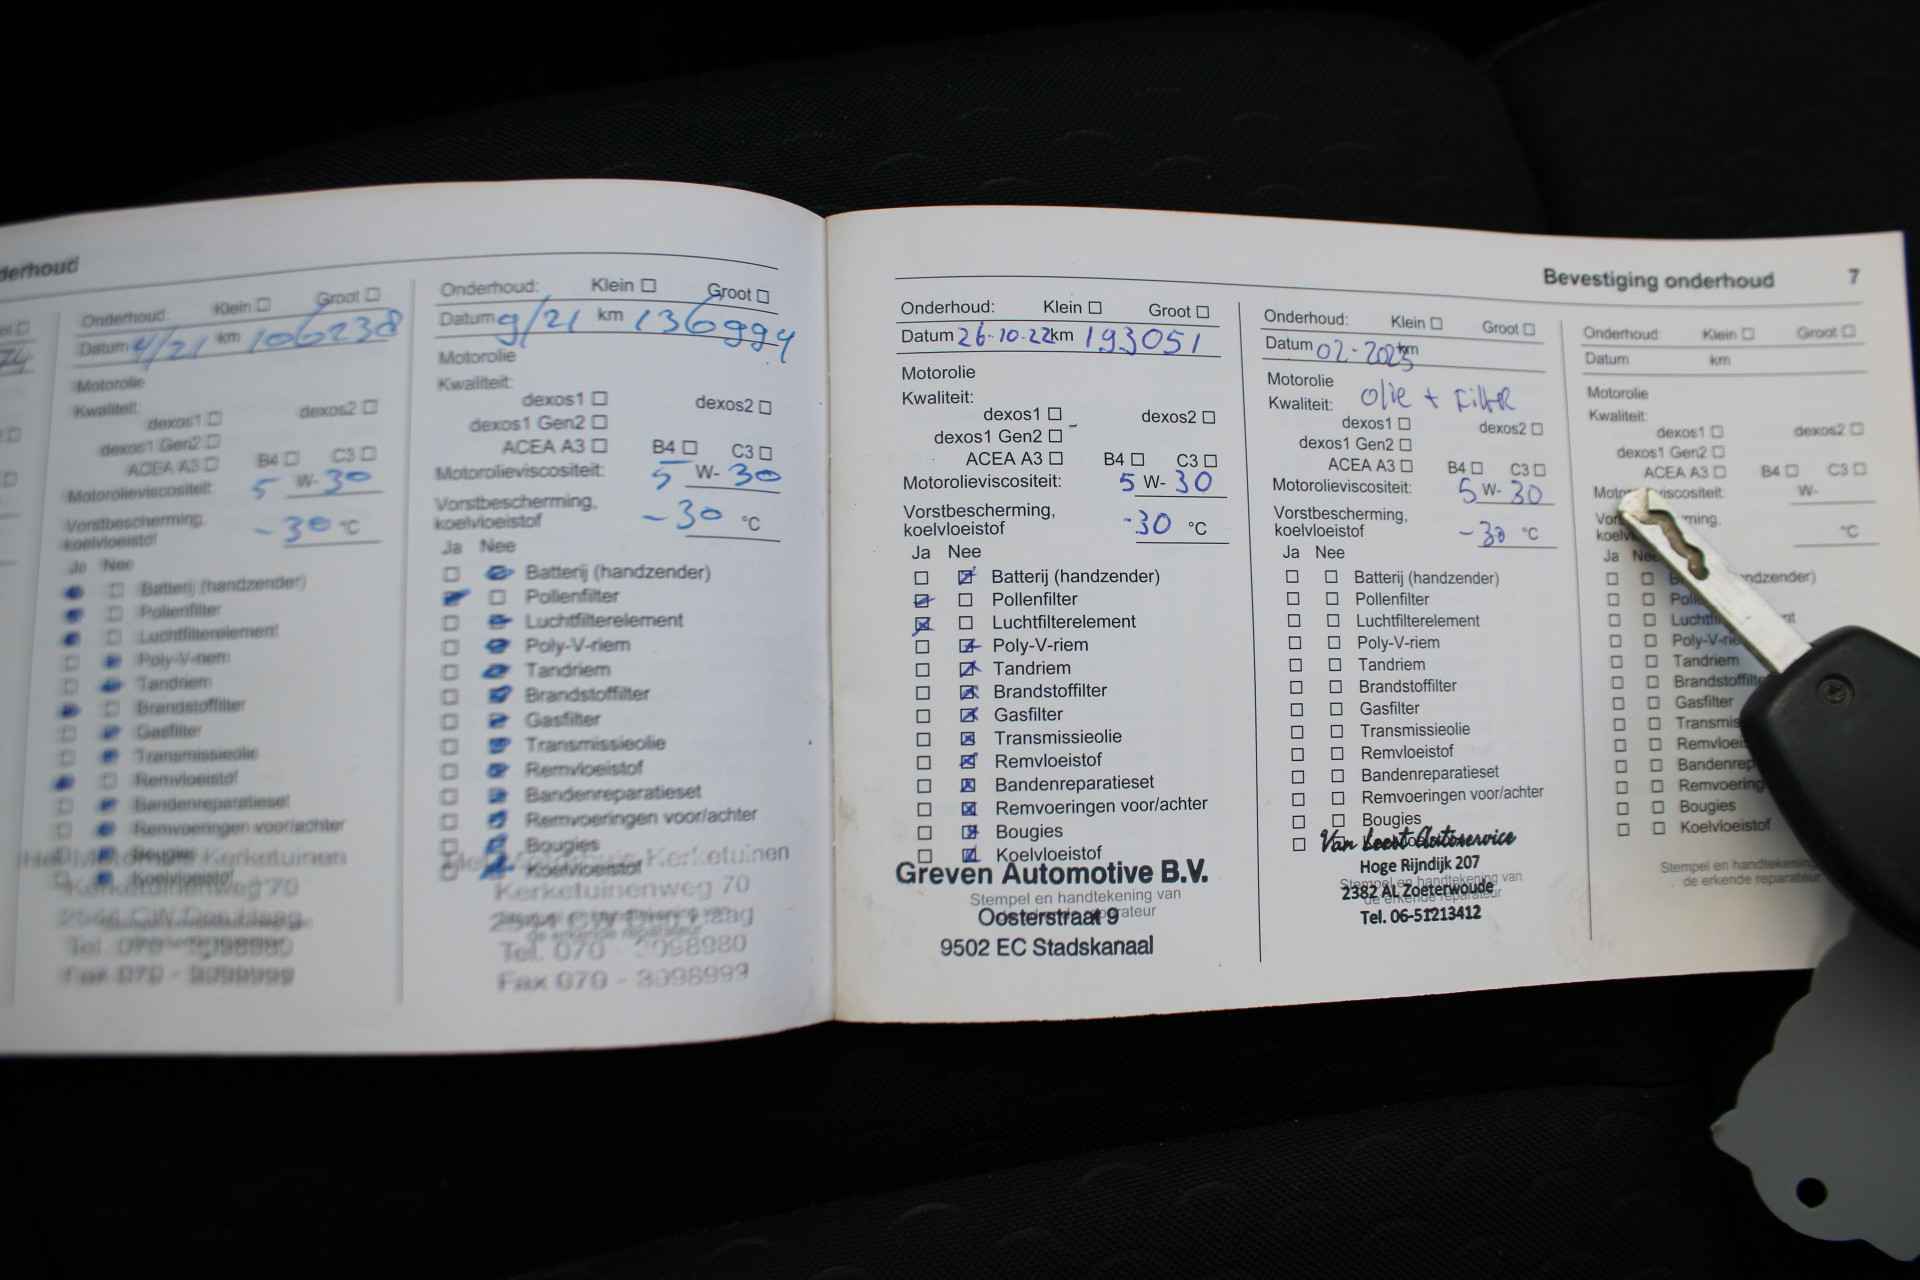 derhoud
Onderhoud: Klein Groot
Datum 4/21 km 106238
Motorolie
Kwaliteit:
dexos1 dexos2
dexos1 Gen2
ACEA A3 B4 C3
Motorolieviscositeit: 5 W- 30
Vorstbescherming,
koelvloeistof -30 °C
Ja Nee
Batterij (handzender)
Pollenfilter
Luchtfilterelement
Poly-V-riem
Tandriem
Brandstoffilter
Gasfilter
Transmissieolie
Remvloeistof
Bandenreparatieset
Remvoeringen voor/achter
Bougies
Kerketuinen
Koelvloeistof
Kerketuinenweg 70
Tel. 070 -
Fax 070 -
Onderhoud: Klein Groot
Datum 9/21 km 136994
Motorolie
Kwaliteit:
dexos1 dexos2
dexos1 Gen2
ACEA A3 B4 C3
Motorolieviscositeit: 5 W- 30
Vorstbescherming,
koelvloeistof -30 °C
Ja Nee
Batterij (handzender)
Pollenfilter
Luchtfilterelement
Poly-V-riem
Tandriem
Brandstoffilter
Gasfilter
Transmissieolie
Remvloeistof
Bandenreparatieset
Remvoeringen voor/achter
Bougies
Kerketuinen
Koelvloeistof
Kerketuinenweg 70
de erkende reparateur
Tel. 070 - 3098980
Fax 070 - 3098999
Bevestiging onderhoud 7
Onderhoud: Klein Groot
Datum 26-10-22 km 193051
Motorolie
Kwaliteit:
dexos1 dexos2
dexos1 Gen2
ACEA A3 B4 C3
Motorolieviscositeit: 5 W- 30
Vorstbescherming,
koelvloeistof -30 °C
Ja Nee
Batterij (handzender)
Pollenfilter
Luchtfilterelement
Poly-V-riem
Tandriem
Brandstoffilter
Gasfilter
Transmissieolie
Remvloeistof
Bandenreparatieset
Remvoeringen voor/achter
Bougies
Koelvloeistof
Greven Automotive B.V.
Stempel en handtekening van
de erkende reparateur
Oosterstraat 9
9502 EC Stadskanaal
Onderhoud: Klein Groot
Datum 02-2023 km
Motorolie Olie + Filter
Kwaliteit:
dexos1 dexos2
dexos1 Gen2
ACEA A3 B4 C3
Motorolieviscositeit: 5 W- 30
Vorstbescherming,
koelvloeistof -30 °C
Ja Nee
Batterij (handzender)
Pollenfilter
Luchtfilterelement
Poly-V-riem
Tandriem
Brandstoffilter
Gasfilter
Transmissieolie
Remvloeistof
Bandenreparatieset
Remvoeringen voor/achter
Bougies
Van Leest Autoservice
Hoge Rijndijk 207
Stempel en handtekening van
2382 AL Zoeterwoude
de erkende reparateur
Tel. 06-51213412
Onderhoud: Klein Groot
Datum km
Motorolie
Kwaliteit:
dexos1 dexos2
dexos1 Gen2
ACEA A3 B4 C3
viscositeit: W-
°C
Ja Nee
Tandriem
Gasfilter
Bougies
Koelvloeistof
Stempel en handtekening
de erkende reparateur